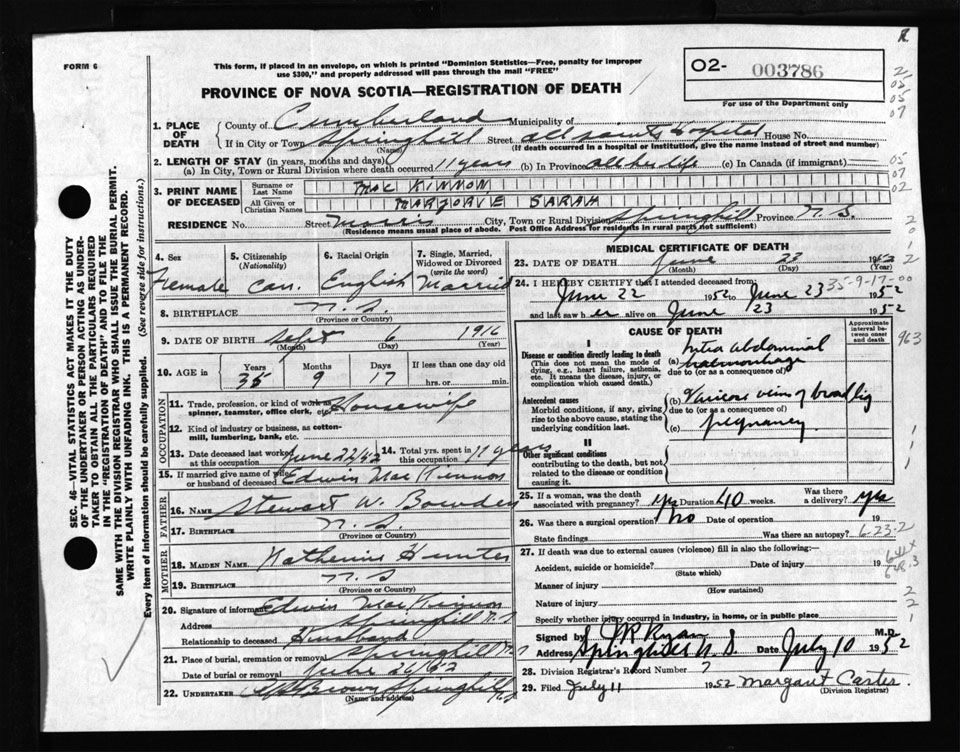 FORM 6
This form, if placed in an envelope, on which is printed "Dominion Statistics—Free, penalty for improper
use $300," and properly addressed will pass through the mail "FREE"
O2- 003786
For use of the Department only
PROVINCE OF NOVA SCOTIA—REGISTRATION OF DEATH
1. PLACE OF DEATH
County of Cumberland Municipality of
If in City or Town Springhill Street All Saints Hospital House No.
(Name) (If death occurred in a hospital or institution, give the name instead of street and number)
2. LENGTH OF STAY (in years, months and days)
(a) In City, Town or Rural Division where death occurred 11 years (b) In Province all her life (c) In Canada (if immigrant)
3. PRINT NAME OF DECEASED
Surname or Last Name MAC KINNON
All Given or Christian Names MARJORYE SARAH
RESIDENCE No. Street Morris City, Town or Rural Division Springhill Province N.S.
(Residence means usual place of abode. Post Office Address for residents in rural parts not sufficient)
4. Sex Female
5. Citizenship (Nationality) Can.
6. Racial Origin English
7. Single, Married, Widowed or Divorced (write the word) Married
8. BIRTHPLACE N.S.
(Province or Country)
9. DATE OF BIRTH Sept 6 1916
(Month) (Day) (Year)
10. AGE in Years 35 Months 9 Days 17 If less than one day old hrs. or min.
OCCUPATION
11. Trade, profession, or kind of work as spinner, teamster, office clerk, etc. Housewife
12. Kind of industry or business, as cotton-mill, lumbering, bank, etc.
13. Date deceased last worked at this occupation June 22/52
14. Total yrs. spent in this occupation 17 years
15. If married give name of wife or husband of deceased Edwin Mac Kinnon
FATHER
16. NAME Stewart W. Bowden
17. BIRTHPLACE N.S.
(Province or Country)
MOTHER
18. MAIDEN NAME Katherine Hunter
19. BIRTHPLACE N.S
(Province or Country)
20. Signature of informant Edwin MacKinnon
Address Springhill N.S
Relationship to deceased Husband
21. Place of burial, cremation or removal Springhill N.S
Date of burial or removal June 26/52
22. UNDERTAKER Brown Springhill N.S
(Name and address)
MEDICAL CERTIFICATE OF DEATH
23. DATE OF DEATH June 23 1952
(Month) (Day) (Year)
24. I HEREBY CERTIFY that I attended deceased from
June 22 1952 to June 23 1952
35-9-17
and last saw her alive on June 23 1952
CAUSE OF DEATH
Approximate interval between onset and death
I
Disease or condition directly leading to death
(This does not mean the mode of dying, e.g., heart failure, asthenia, etc. It means the disease, injury, or complication which caused death.)
(a) Intra abdominal haemorrhage
due to (or as a consequence of)
Antecedent causes
Morbid conditions, if any, giving rise to the above cause, stating the underlying condition last.
(b) Varicose veins of broad lig
due to (or as a consequence of)
(c) pregnancy
II
Other significant conditions
contributing to the death, but not related to the disease or condition causing it.
25. If a woman, was the death associated with pregnancy? Yes Duration 40 weeks. Was there a delivery? Yes
26. Was there a surgical operation? No Date of operation 19
State findings Was there an autopsy?
6-23-2
27. If death was due to external causes (violence) fill in also the following:—
Accident, suicide or homicide? Date of injury 19
(State which)
Manner of injury
(How sustained)
Nature of injury
Specify whether injury occurred in industry, in home, or in public place
Signed by J R Ryan M.D.
Address Springhill N.S. Date July 10 1952
28. Division Registrar's Record Number 7
29. Filed July 11 1952 Margaret Carter
(Division Registrar)
SEC. 46—VITAL STATISTICS ACT MAKES IT THE DUTY
OF THE UNDERTAKER OR PERSON ACTING AS UNDER-
TAKER TO OBTAIN ALL THE PARTICULARS REQUIRED
IN THE "REGISTRATION OF DEATH" AND TO FILE THE
SAME WITH THE DIVISION REGISTRAR WHO SHALL ISSUE THE BURIAL PERMIT.
WRITE PLAINLY WITH UNFADING INK. THIS IS A PERMANENT RECORD.
Every item of information should be carefully supplied. (See reverse side for instructions.)
2
05
05
07
05
07
02
963